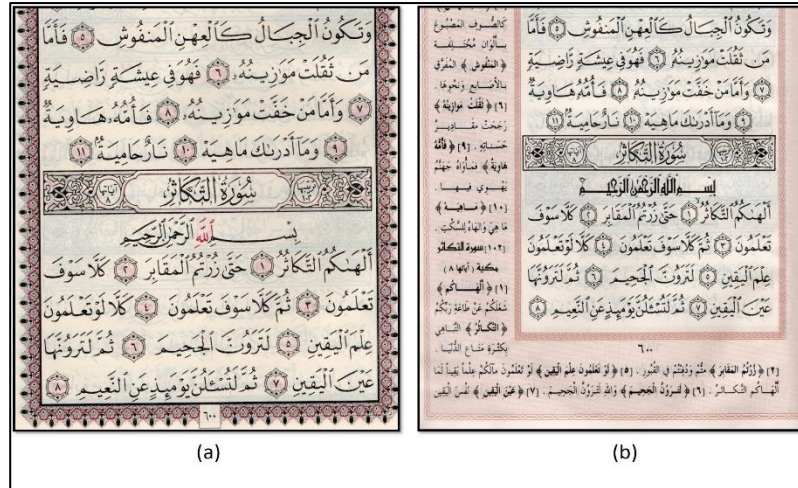 وَتَكُونُ ٱلْجِبَالُ كَٱلْعِهْنِ ٱلْمَنفُوشِ ٥ فَأَمَّا
مَن ثَقُلَتْ مَوَٰزِينُهُۥ ٦ فَهُوَ فِى عِيشَةٍ رَّاضِيَةٍ
٧ وَأَمَّا مَنْ خَفَّتْ مَوَٰزِينُهُۥ ٨ فَأُمُّهُۥ هَاوِيَةٌ
٩ وَمَآ أَدْرَىٰكَ مَا هِيَهْ ١٠ نَارٌ حَامِيَةٌۢ ١١
سُورَةُ التَّكَاثُرِ
بِسْمِ ٱللَّهِ ٱلرَّحْمَٰنِ ٱلرَّحِيمِ
أَلْهَىٰكُمُ ٱلتَّكَاثُرُ ١ حَتَّىٰ زُرْتُمُ ٱلْمَقَابِرَ ٢ كَلَّا سَوْفَ
تَعْلَمُونَ ٣ ثُمَّ كَلَّا سَوْفَ تَعْلَمُونَ ٤ كَلَّا لَوْ تَعْلَمُونَ
عِلْمَ ٱلْيَقِينِ ٥ لَتَرَوُنَّ ٱلْجَحِيمَ ٦ ثُمَّ لَتَرَوُنَّهَا
عَيْنَ ٱلْيَقِينِ ٧ ثُمَّ لَتُسْـَٔلُنَّ يَوْمَئِذٍ عَنِ ٱلنَّعِيمِ ٨
٦٠٠
(a)
وَتَكُونُ ٱلْجِبَالُ كَٱلْعِهْنِ ٱلْمَنفُوشِ ٥ فَأَمَّا
مَن ثَقُلَتْ مَوَٰزِينُهُۥ ٦ فَهُوَ فِى عِيشَةٍ رَّاضِيَةٍ
٧ وَأَمَّا مَنْ خَفَّتْ مَوَٰزِينُهُۥ ٨ فَأُمُّهُۥ هَاوِيَةٌ
٩ وَمَآ أَدْرَىٰكَ مَا هِيَهْ ١٠ نَارٌ حَامِيَةٌۢ ١١
سُورَةُ التَّكَاثُرِ
بِسْمِ ٱللَّهِ ٱلرَّحْمَٰنِ ٱلرَّحِيمِ
أَلْهَىٰكُمُ ٱلتَّكَاثُرُ ١ حَتَّىٰ زُرْتُمُ ٱلْمَقَابِرَ ٢ كَلَّا سَوْفَ
تَعْلَمُونَ ٣ ثُمَّ كَلَّا سَوْفَ تَعْلَمُونَ ٤ كَلَّا لَوْ تَعْلَمُونَ
عِلْمَ ٱلْيَقِينِ ٥ لَتَرَوُنَّ ٱلْجَحِيمَ ٦ ثُمَّ لَتَرَوُنَّهَا
عَيْنَ ٱلْيَقِينِ ٧ ثُمَّ لَتُسْـَٔلُنَّ يَوْمَئِذٍ عَنِ ٱلنَّعِيمِ ٨
٦٠٠
كَالصُّوفِ المَصْبُوغِ
بِأَلْوَانٍ مُخْتَلِفَةٍ
﴿المَنْفُوشِ﴾ المُفَرَّقِ
بِالأَصَابِعِ وَنَحْوِهَا.
[٦] ﴿ثَقُلَتْ مَوَازِينُهُ﴾
رَجَحَتْ مَقَادِيرُ
حَسَنَاتِهِ. [٩] ﴿فَأُمُّهُ
هَاوِيَةٌ﴾ فَمَأْوَاهُ جَهَنَّمُ
يَهْوِي فِيهَا.
[١٠] ﴿مَاهِيَهْ﴾
مَا هِيَ وَالهَاءُ لِلسَّكْتِ.
[١٠٢] سورة التكاثر
مكية (آياتها ٨)
[١] ﴿أَلْهَاكُمْ﴾
شَغَلَكُمْ عَنْ طَاعَةِ رَبِّكُمْ
﴿التَّكَاثُرُ﴾ التَّبَاهِي
بِكَثْرَةِ مَتَاعِ الدُّنْيَا.
[٢] ﴿زُرْتُمُ المَقَابِرَ﴾ مِتُّمْ وَدُفِنْتُمْ فِي القُبُورِ. [٥] ﴿لَوْ تَعْلَمُونَ عِلْمَ اليَقِينِ﴾ لَوْ تَعْلَمُونَ مَآلَكُمْ عِلْماً يَقِيناً لَمَا
أَلْهَاكُمُ التَّكَاثُرُ. [٦] ﴿لَتَرَوُنَّ الجَحِيمَ﴾ وَاللهِ لَتَرَوُنَّ الجَحِيمَ. [٧] ﴿عَيْنَ اليَقِينِ﴾ نَفْسَ اليَقِينِ
(b)